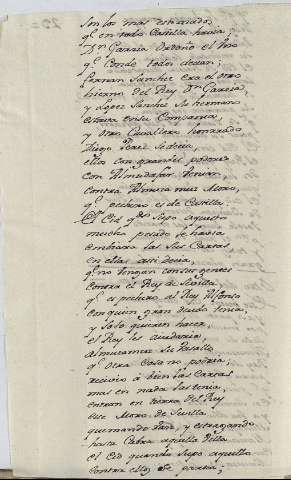 Son los mas estimados
q.e en toda Castilla havia;
D.n Garcia Ordoño el uno
q.e Conde todos decian;
fernan Sanchez era el otro
hierno del Rey D.n Garcia
y Lopez Sanchez su hermano
estava en su Compania
y otro Cavallero honrrado
Diego Perez se decia,
ellos con grandes poderes
con Almudafar venian,
contra Almuca muz Moro,
q.e pechero es de Castilla.
El Cid q.do supo aquesto
mucho pesado le havia
embiara las sus Cartas
en ellas assi decia,
q.e no vengan con sus gentes
contra el Rey de Sevilla
q.e es pechero al Rey Alfonso
con quien gran deudo tenia,
y si lo quieren hacer
el Rey les ayudaria,
a su Vasallo
q.e otra cosa no podria;
recivio á bien las Cartas
mas en nada las tenia
entran en tierra del Rey
ese Moro de Sevilla
quemando Pan, y estragando
hasta Cabra aquella Villa
el Cid quando supo aquello
contra ellos se partia;